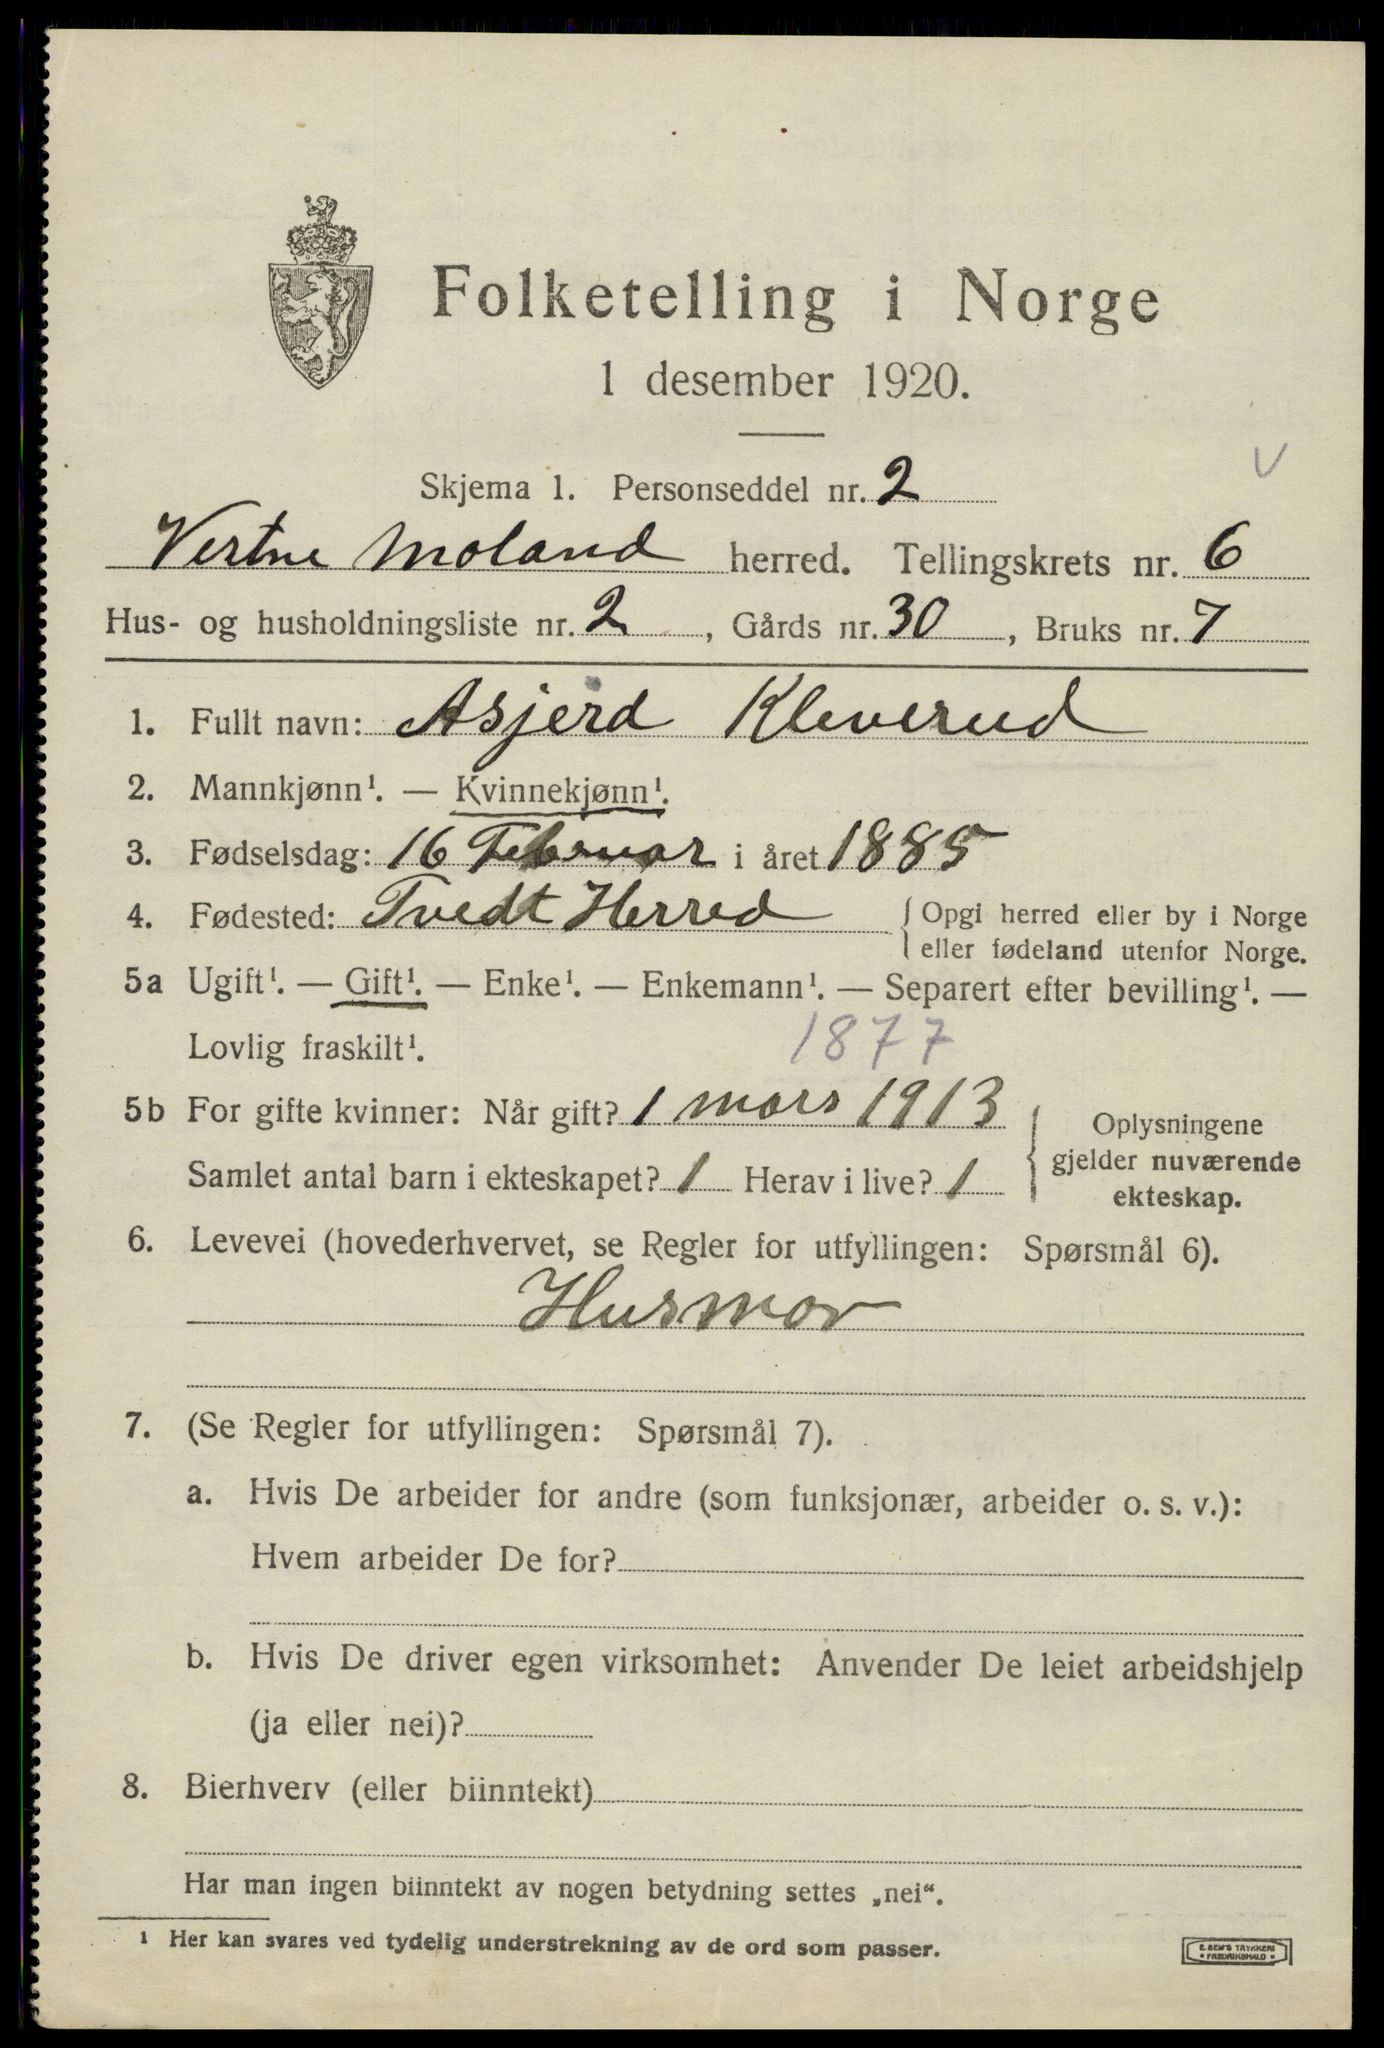 Folketelling i Norge
1 desember 1920.
Skjema 1. Personseddel nr. 2
Vestne Moland herred. Tellingskrets nr. 6
Hus- og husholdningsliste nr. 2, Gårds nr. 30, Bruks nr. 7
1. Fullt navn: Asjerd Kleverud
2. Mannkjønn¹. — Kvinnekjønn¹.
3. Fødselsdag: 16 Februar i året 1885
4. Fødested: Tvedt Herred {Opgi herred eller by i Norge
eller fødeland utenfor Norge.
5a Ugift¹. — Gift¹. — Enke¹. — Enkemann¹. — Separert efter bevilling¹. —
Lovlig fraskilt¹. 1877
5b For gifte kvinner: Når gift? 1 mars 1913
Samlet antal barn i ekteskapet? 1 Herav i live? 1
Oplysningene
gjelder nuværende
ekteskap.
6. Levevei (hovederhvervet, se Regler for utfyllingen: Spørsmål 6).
Husmor
7. (Se Regler for utfyllingen: Spørsmål 7).
a. Hvis De arbeider for andre (som funksjonær, arbeider o. s. v.):
Hvem arbeider De for?
b. Hvis De driver egen virksomhet: Anvender De leiet arbeidshjelp
(ja eller nei)?
8. Bierhverv (eller biinntekt)
Har man ingen biinntekt av nogen betydning settes „nei“.
¹ Her kan svares ved tydelig understrekning av de ord som passer.
E. SEM'S TRYKKERI
FREDRIKSHALD